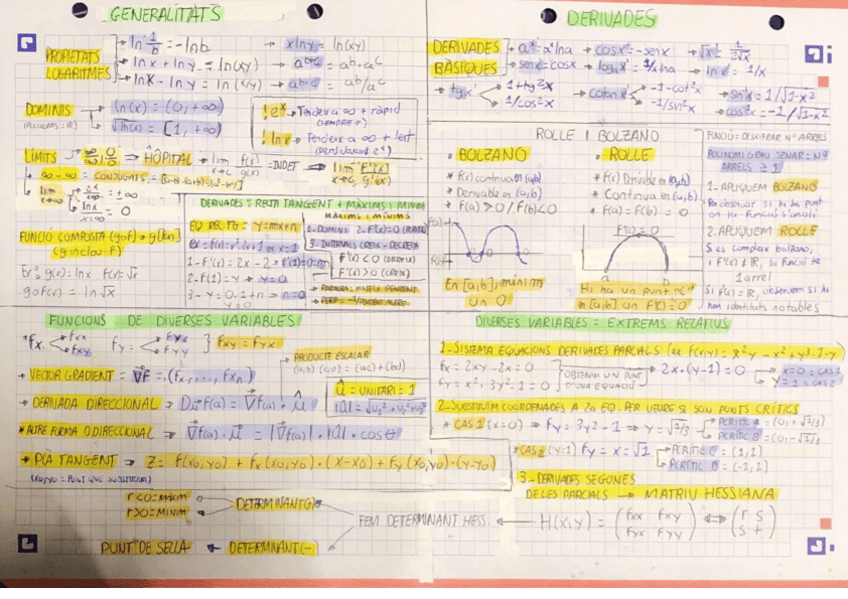 GENERALITATS
PROPIETATS LOGARITMES
ln 1/b = -lnb
→ xlny = ln(xy)
lnx + lny = ln(xy)
→ a^b+c = ab·ac
lnx - lny = ln(x/y)
→ ab-c = ab/ac
DOMINIS
ln(x) = (0, +∞)
√ln(x) = [1, +∞)
! e^x → Tendeix a ∞ + ràpid
(SEMPRE +)
! lnx → Tendeix a ∞ + lent
LÍMITS
∞/∞ 0/0 ⇒ HÔPITAL → lim x→c f(x)/g(x) = INDET ⇒ lim x→c F'(x)/g'(x)
∞-∞ = CONJUGATS
= ±∞
lnx = 0
FUNCIÓ COMPOSTA (goF) → g[F(x)]
(g inclou F)
Ex: g(x) = lnx F(x) = √x
goF(x) = ln√x
DERIVADES = RECTA TANGENT + MÀXIMS I MÍNIMS
EQ REC TG = y=mx+n
1- F'(x) = 2x - 2 → F'(1) = 0 = m
2- F(1) = y → y = 0
3- y = 0·1+n → n=0
MÀXIMS I MÍNIMS
1. DOMINI 2. F'(x) = 0
3. INTERVALS CREIX - DECREIX
F'(x) < 0 (DECREIX)
F'(x) > 0 (CREIX)
DERIVADES
DERIVADES BÀSIQUES
→ a^x' = a^x lna
→ cosx' = -senx
→ √x' = 1/2√x
→ senx' = cosx
→ logax' = 1/x lna
→ lnx' = 1/x
→ tgx'
1+tg²x
1/cos²x
→ cotanx'
-1-cot²x
-1/sin²x
→ sin^-1x = 1/√1-x²
→ cos^-1x = -1/√1-x²
ROLLE I BOLZANO
BOLZANO
* F(x) contínua en (a,b)
* Derivable en (a,b)
* F(a) > 0 / F(b) < 0
F(a)
F(b)
En [a,b], mínim un 0
ROLLE
* F(x) Derivable en (a,b)
* Contínua en (a,b)
* F(a) = F(b) = 0
F'(c) = 0
a
b
Hi ha un punt "c" en [a,b] un F'(c) = 0
FUNCIÓ = DESXIFRAR Nº ARRELS
POLINOMI GRAU SENAR = Nº ARRELS ≥ 1
1- APLIQUEM BOLZANO
Per observar si hi ha punt
on la funció s'anul·li
2. APLIQUEM ROLLE
Si es compleix bolzano,
i F'(x) ≠ ℝ, la funció té
1 arrel
Si F'(x) = ℝ, observem si hi ha
identitats notables
FUNCIONS DE DIVERSES VARIABLES
*fx
fxx
fxy
fy =
fyx
fyy
fxy = fyx
→ VECTOR GRADIENT = ∇F = (Fx,..., Fxn)
PRODUCTE ESCALAR
(a,b)·(c,d) = (ac)+(bd)
→ DERIVADA DIRECCIONAL → Dûf(a) = ∇f(a)·û
û = UNITARI = 1
* ALTRE FORMA D.DIRECCIONAL → ∇f(a)·û = |∇f(a)|·|û|·cosθ
→ PLA TANGENT → Z = F(x0,y0) + fx(x0,y0)·(x-x0) + fy(x0,y0)·(y-y0)
(x0,y0 = PUNT QUE SUBSTITUÏM)
r<0 = MÀXIM
r>0 = MÍNIM
DETERMINANT(+)
PUNT DE SELLA ← DETERMINANT(-)
FEM DETERMINANT HESS.
DIVERSES VARIABLES = EXTREMS RELATIUS
1-SISTEMA EQUACIONS DERIVADES PARCIALS (ex F(x,y) = x²y - x² + y³ - y)
fx = 2xy - 2x = 0
fy = x² + 3y² - 1 = 0
OBTENIM UN PUNT D'UNA EQUACIÓ
→ 2x·(y-1) = 0
x=0 = CAS 1
y=1 = CAS 2
2-SUBSTITUÏM COORDENADES A 2a EQ. PER VEURE SI SON PUNTS CRÍTICS
* CAS 1 (x=0) → Fy = 3y² - 1 → y = √1/3
P.CRÍTIC A = (0, +√1/3)
P.CRÍTIC B = (0, -√1/3)
*CAS 2 (y=1) fy = x = √1
P.CRÍTIC C = (1,1)
P.CRÍTIC B = (-1,1)
3-DERIVADES SEGONES
DE LES PARCIALS → MATRIU HESSIANA
H(x,y) = (fxx fxy fyx fyy) ⟷ (r s s t)